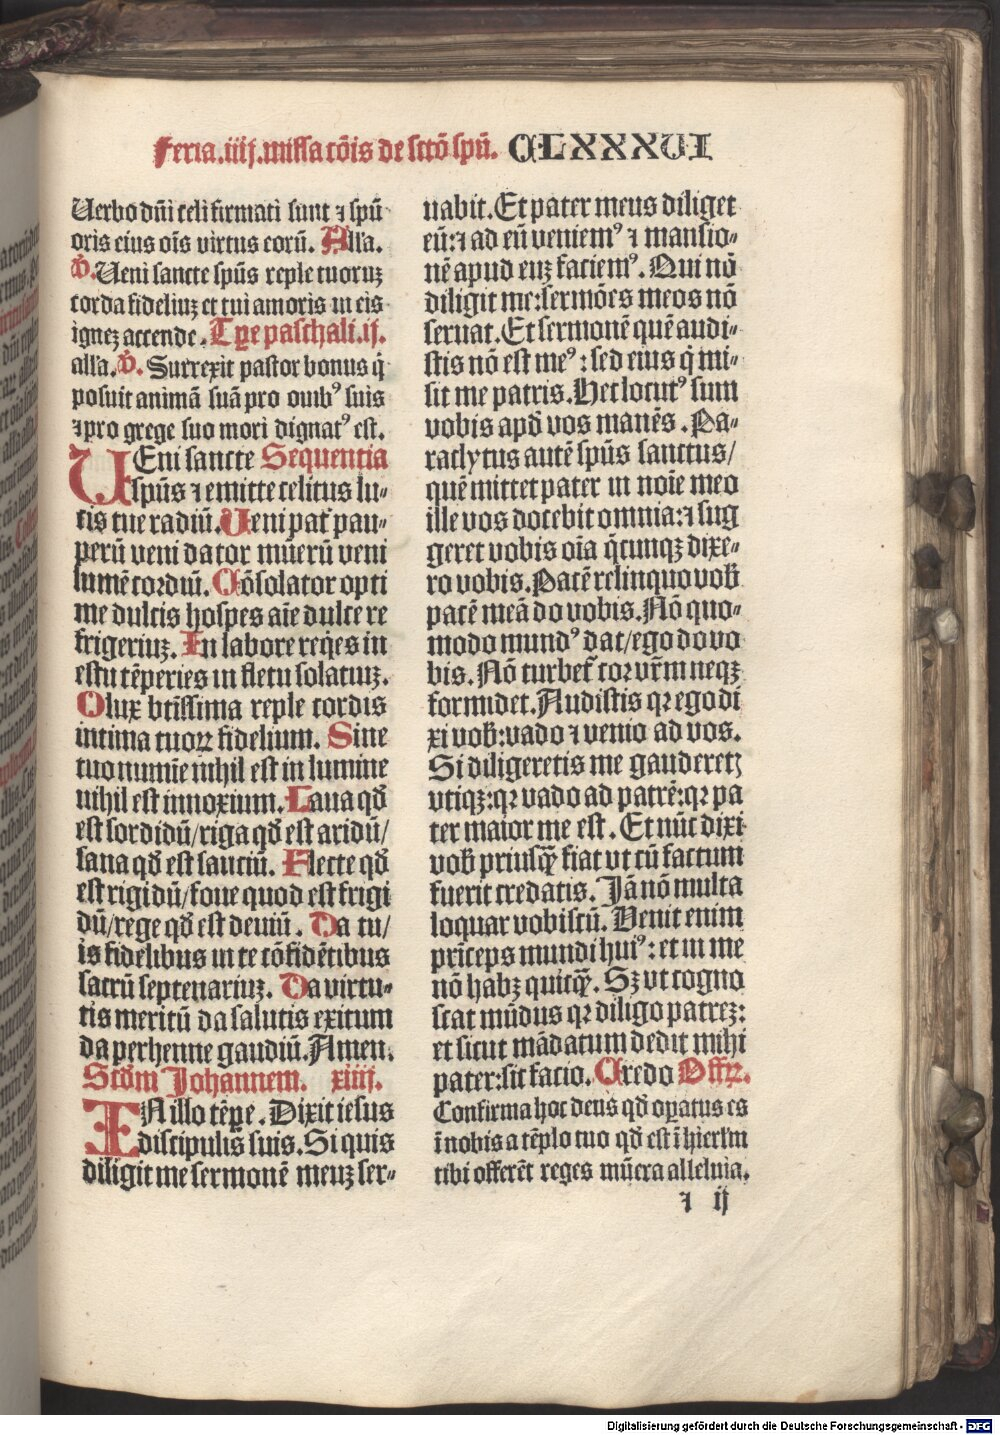 Feria.iiij.missa cōis de sctō spū. CLXXXVI
Uerbo dñi celi firmati sunt ⁊ spū
oris eius oīs virtus eorū. Alla.
℣. Ueni sancte spūs reple tuoruꝫ
corda fideliuꝫ et tui amoris in eis
igneꝫ accende. Tꝑe paschali.ij.
alla. ℣. Surrexit pastor bonus q̇
posuit animā suā pro ouibꝰ suis
⁊ pro grege suo mori dignatꝰ est.
UEni sancte Sequentia
spūs ⁊ emitte celitus lu⸗
cis tue radiū. Ueni pať pau⸗
perū veni dator mūerū veni
lumē cordiū. Cōsolator opti
me dulcis hospes aīe dulce re
frigeriuꝫ. In labore req̇es in
estu tēperies in fletu solatiuꝫ.
O lux btīssima reple cordis
intima tuoꝝ fidelium. Sine
tuo numīe nihil est in lumine
nihil est innoxium. Laua qđ
est sordidū/riga qđ est aridū/
sana qđ est sauciū. Flecte qđ
est rigidū/foue quod est frigi
dū/rege qđ est deuiū. Da tu/
is fidelibus in te cōfidētibus
sacrū septenariuꝫ. Da virtu⸗
tis meritū da salutis exitum
da perhenne gaudiū. Amen.
Scđm Johannem. xiiij.
IN illo tēpe. Dixit iesus
discipulis suis. Si quis
diligit me sermonē meuꝫ ser⸗
uabit. Et pater meus diliget
eū: ⁊ ad eū veniemꝰ ⁊ mansio⸗
nē apud euꝫ faciemꝰ. Qui nō
diligit me: sermōes meos nō
seruat. Et sermonē quē audi⸗
stis nō est meꝰ: sed eius q̇ mi⸗
sit me patris. Hec locutꝰ sum
vobis apđ vos manēs. Pa⸗
raclytus autē spūs sanctus/
quē mittet pater in noīe meo
ille vos docebit omnia: ⁊ sug
geret vobis oīa q̄cunqꝫ dixe⸗
ro vobis. Pacē relinquo vob̄
pacē meā do vobis. Nō quo⸗
modo mundꝰ dat/ego do vo
bis. Nō turbet̄ cor vr̄m neqꝫ
formidet. Audistis qꝛ ego di
xi vob̄: vado ⁊ venio ad vos.
Si diligeretis me gauderetꝭ
vtiqꝫ: qꝛ vado ad patrē: qꝛ pa
ter maior me est. Et nūc dixi
vob̄ priusꝙ̄ fiat vt cū factum
fuerit credatis. Jā nō multa
loquar vobiscū. Venit enim
prīceps mundi huiꝰ: et in me
nō habꝫ quicꝙ̄. Sꝫ vt cogno
scat mūdus qꝛ diligo patreꝫ:
et sicut mādatum dedit mihi
pater: sic facio. Credo Offꝝ.
Confirma hoc deus qđ oꝑatus es
ī nobis a tēplo tuo qđ est ī hierłm
tibi offerēt reges mūera alleluia.
⁊ ij
Digitalisierung gefördert durch die Deutsche Forschungsgemeinschaft - DFG